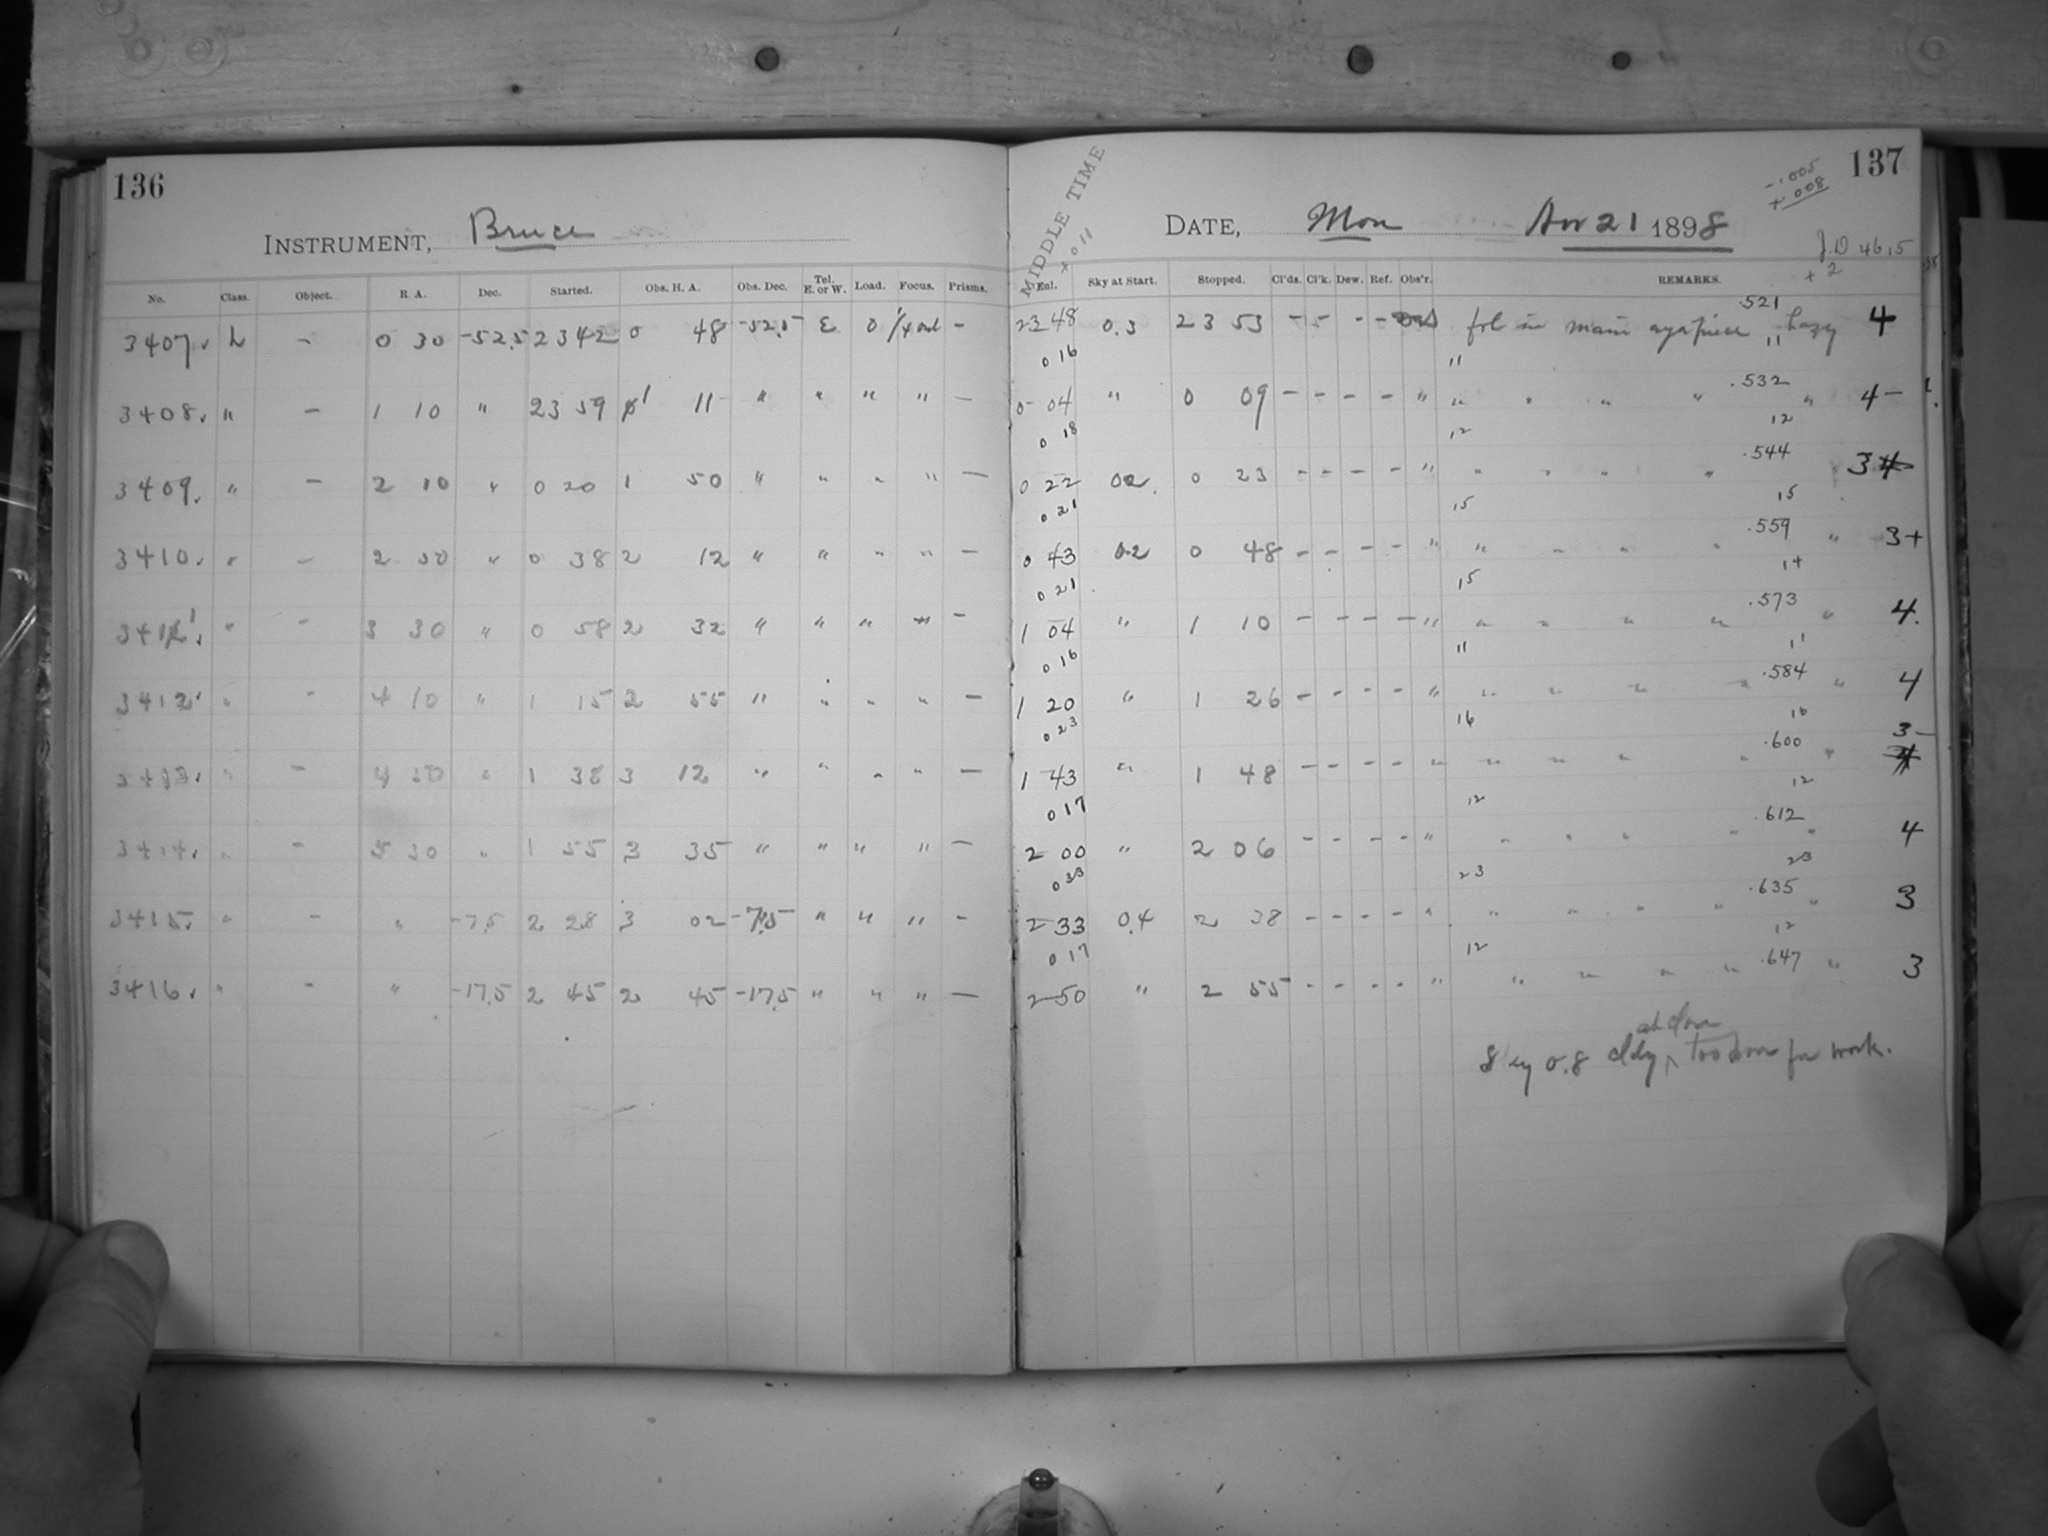 136
INSTRUMENT, Bruce
No. Class. Object. R. A. Dec. Started. Obs. H. A. Obs. Dec. Tel. E. or W. Load. Focus. Prisms.
3407. L - 0 30 -52.5 23 42 0 48 -52.5 E 0 -
3408. " - 1 10 " 23 59 1 11 " " " " -
3409. " - 2 10 " 0 20 1 50 " " " " -
3410. " - 2 50 " 0 38 2 12 " " " " -
3411. " - 3 30 " 0 58 2 32 " " " " -
3412. " - 4 10 " 1 15 2 55 " " " " -
3413. " - 4 50 " 1 38 3 12 " " " " -
3414. " - 5 30 " 1 55 3 35 " " " " -
3415. " - " -7.5 2 28 3 02 -7.5 " " " -
3416. " - " -17.5 2 45 2 45 -17.5 " " " -
137
-.005
+.008
MIDDLE TIME
+ 011
DATE, Mon 21 1898
J.D 46,5
+ 2
Enl. Sky at Start. Stopped. Cl'ds. Cl'k. Dew. Ref. Obs'r. REMARKS.
.521
23 48 0.3 23 53 - 5 - - fol in main eyepiece hazy 4
0 16 11 11
.532
0 04 " 0 09 - - - - " " " " " " 4-
0 18 12 12
.544
0 22 02. 0 23 - - - - " " " " " 3
0 21 15 15
.559
0 43 0.2 0 48 - - - - " " " " " " 3+
0 21 15 14
.573
1 04 " 1 10 - - - - " " " " " " 4.
0 16 11 11
.584
1 20 " 1 26 - - - - " " " " " " 4
0 23 16 16
.600 3-
1 43 " 1 48 - - - - " " " " " "
0 17 12 12
.612
2 00 " 2 06 - - - - " " " " " " 4
0 33 23 23
.635
2 33 0.4 2 38 - - - - " " " " " " 3
0 17 12 12
.647
2 50 " 2 55 - - - - " " " " " " 3
Sky 0.8 cldy, for work.